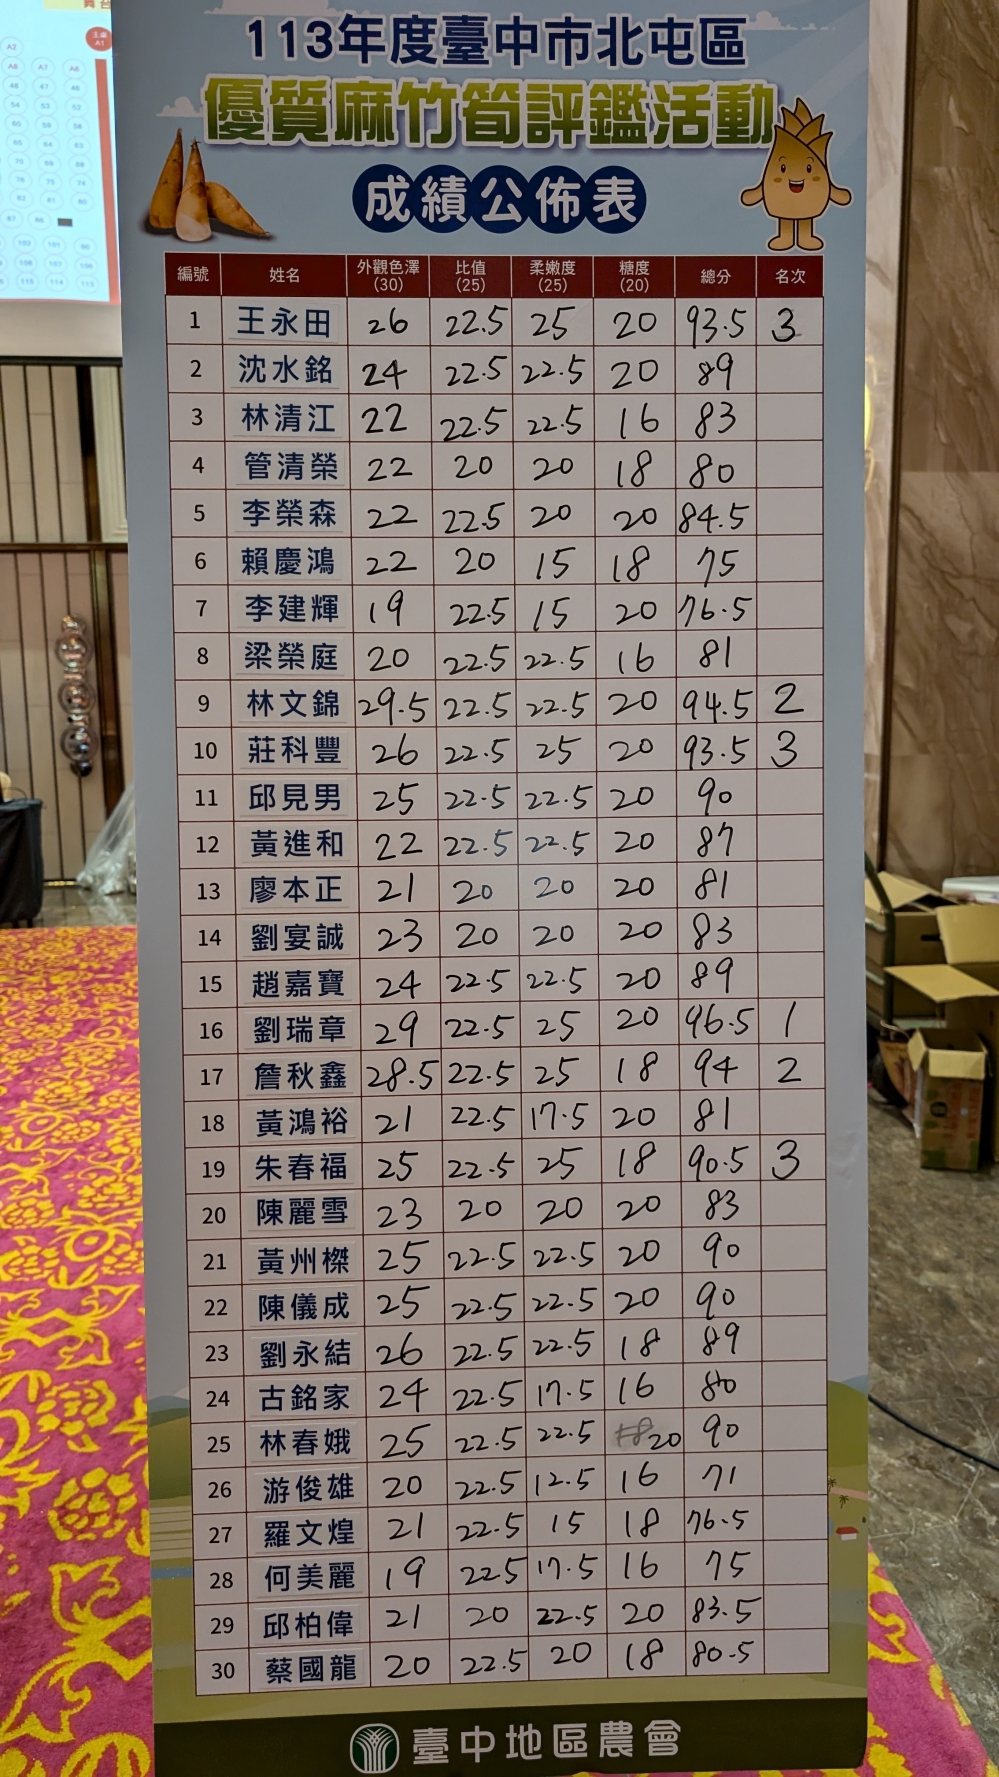 113年度臺中市北屯區
優質麻竹筍評鑑活動
成績公佈表
編號 姓名 外觀色澤(30) 比值(25) 柔嫩度(25) 糖度(20) 總分 名次
1 王永田 26 22.5 25 20 93.5 3
2 沈水銘 24 22.5 22.5 20 89
3 林清江 22 22.5 22.5 16 83
4 管清榮 22 20 20 18 80
5 李榮森 22 22.5 20 20 84.5
6 賴慶鴻 22 20 15 18 75
7 李建輝 19 22.5 15 20 76.5
8 梁榮庭 20 22.5 22.5 16 81
9 林文錦 29.5 22.5 22.5 20 94.5 2
10 莊科豐 26 22.5 25 20 93.5 3
11 邱見男 25 22.5 22.5 20 90
12 黃進和 22 22.5 22.5 20 87
13 廖本正 21 20 20 20 81
14 劉宴誠 23 20 20 20 83
15 趙嘉寶 24 22.5 22.5 20 89
16 劉瑞章 29 22.5 25 20 96.5 1
17 詹秋鑫 28.5 22.5 25 18 94 2
18 黃鴻裕 21 22.5 17.5 20 81
19 朱春福 25 22.5 25 18 90.5 3
20 陳麗雪 23 20 20 20 83
21 黃州榤 25 22.5 22.5 20 90
22 陳儀成 25 22.5 22.5 20 90
23 劉永結 26 22.5 22.5 18 89
24 古銘家 24 22.5 17.5 16 80
25 林春娥 25 22.5 22.5 20 90
26 游俊雄 20 22.5 12.5 16 71
27 羅文煌 21 22.5 15 18 76.5
28 何美麗 19 22.5 17.5 16 75
29 邱柏偉 21 20 22.5 20 83.5
30 蔡國龍 20 22.5 20 18 80.5
臺中地區農會